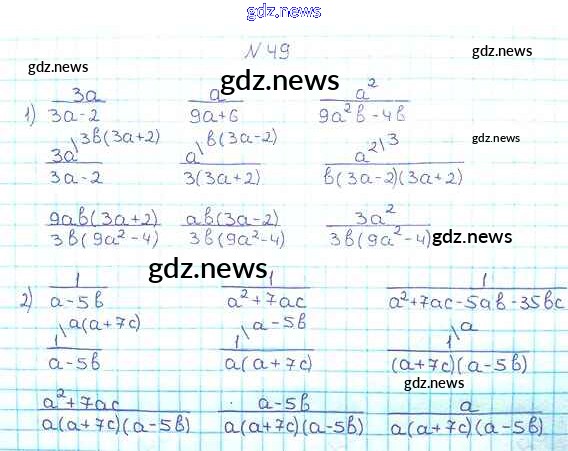 gdz.news
N 49
gdz.news gdz.news gdz.news
1) 3a/(3a-2) a/(9a+6) a²/(9a²в-4в)
gdz.news
3a\3в(3a+2)/(3a-2) a\в(3a-2)/(3(3a+2)) a²\3/(в(3a-2)(3a+2))
9aв(3a+2)/(3в(9a²-4)) aв(3a-2)/(3в(9a²-4)) 3a²/(3в(9a²-4))
gdz.news
gdz.news
2) 1/(a-5в) 1/(a²+7ac) 1/(a²+7ac-5aв-35вc)
1\a(a+7c)/(a-5в) 1\a-5в/(a(a+7c)) 1\a/((a+7c)(a-5в))
gdz.news
(a²+7ac)/(a(a+7c)(a-5в)) (a-5в)/(a(a+7c)(a-5в)) a/(a(a+7c)(a-5в))
gdz.news